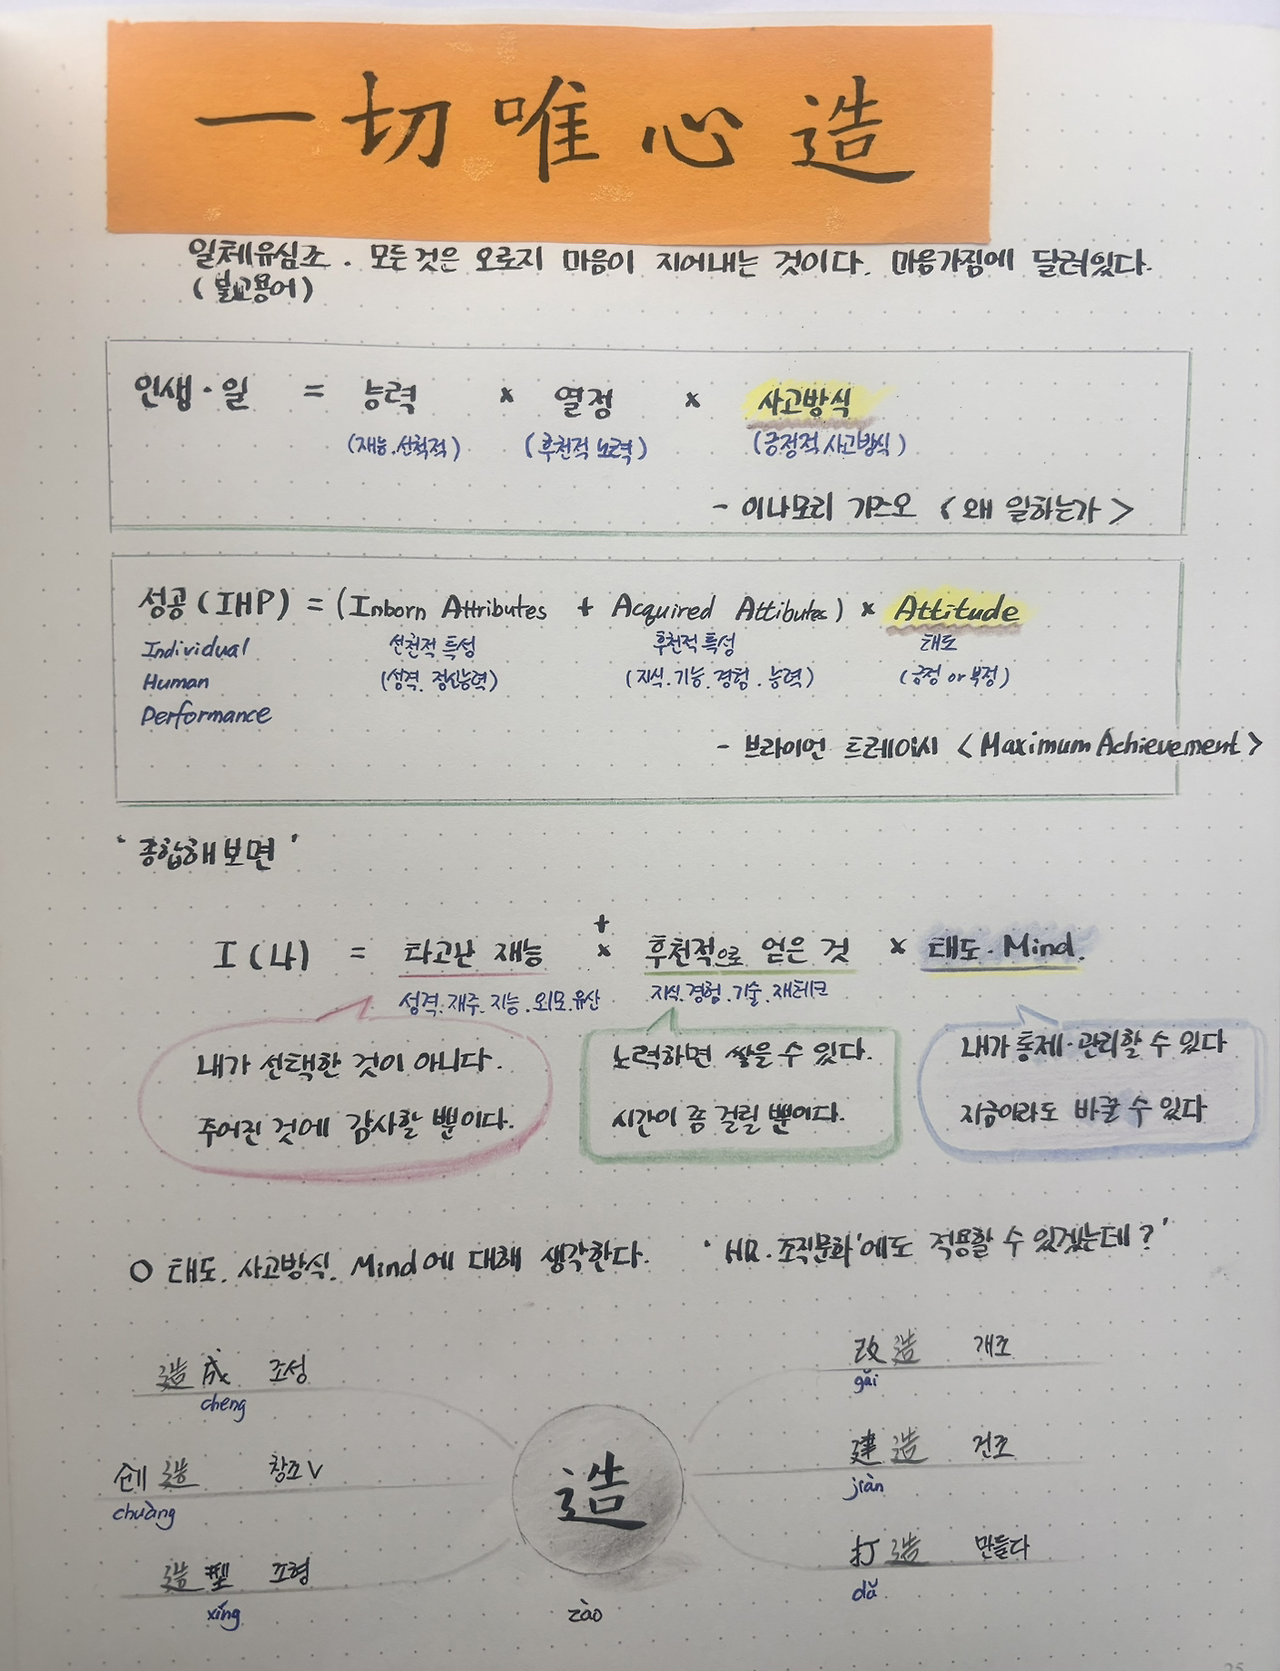 一切唯心造
일체유심조. 모든 것은 오로지 마음이 지어내는 것이다. 마음가짐에 달려있다.
(불교용어)
인생·일 = 능력 × 열정 × 사고방식
(재능.선척적) (후천적 노력) (긍정적 사고방식)
- 이나모리 가즈오 <왜 일하는가>
성공(IHP) = (Inborn Attributes + Acquired Attibutes) × Attitude
Individual 선천적 특성 후천적 특성 태도
Human (성격. 정신능력) (지식.기능.경험.능력) (긍정 or 부정)
Performance
- 브라이언 트레이시 <Maximum Achievement>
'종합해보면'
+
I (나) = 타고난 재능 × 후천적으로 얻은 것 × 태도·Mind.
성격.재주.지능.외모.유산 지식.경험.기술.재테크
내가 선택한 것이 아니다. 노력하면 쌓을 수 있다. 내가 통제·관리할 수 있다
주어진 것에 감사할 뿐이다. 시간이 좀 걸릴 뿐이다. 지금이라도 바꿀 수 있다
○ 태도. 사고방식. Mind에 대해 생각한다. 'HR.조직문화'에도 적용할 수 있겠는데?'
造成 조성 改造 개조
cheng gǎi
创造 창조 V 建造 건조
chuàng jiàn
造
造型 조형 打造 만들다
xíng dǎ
zào
25